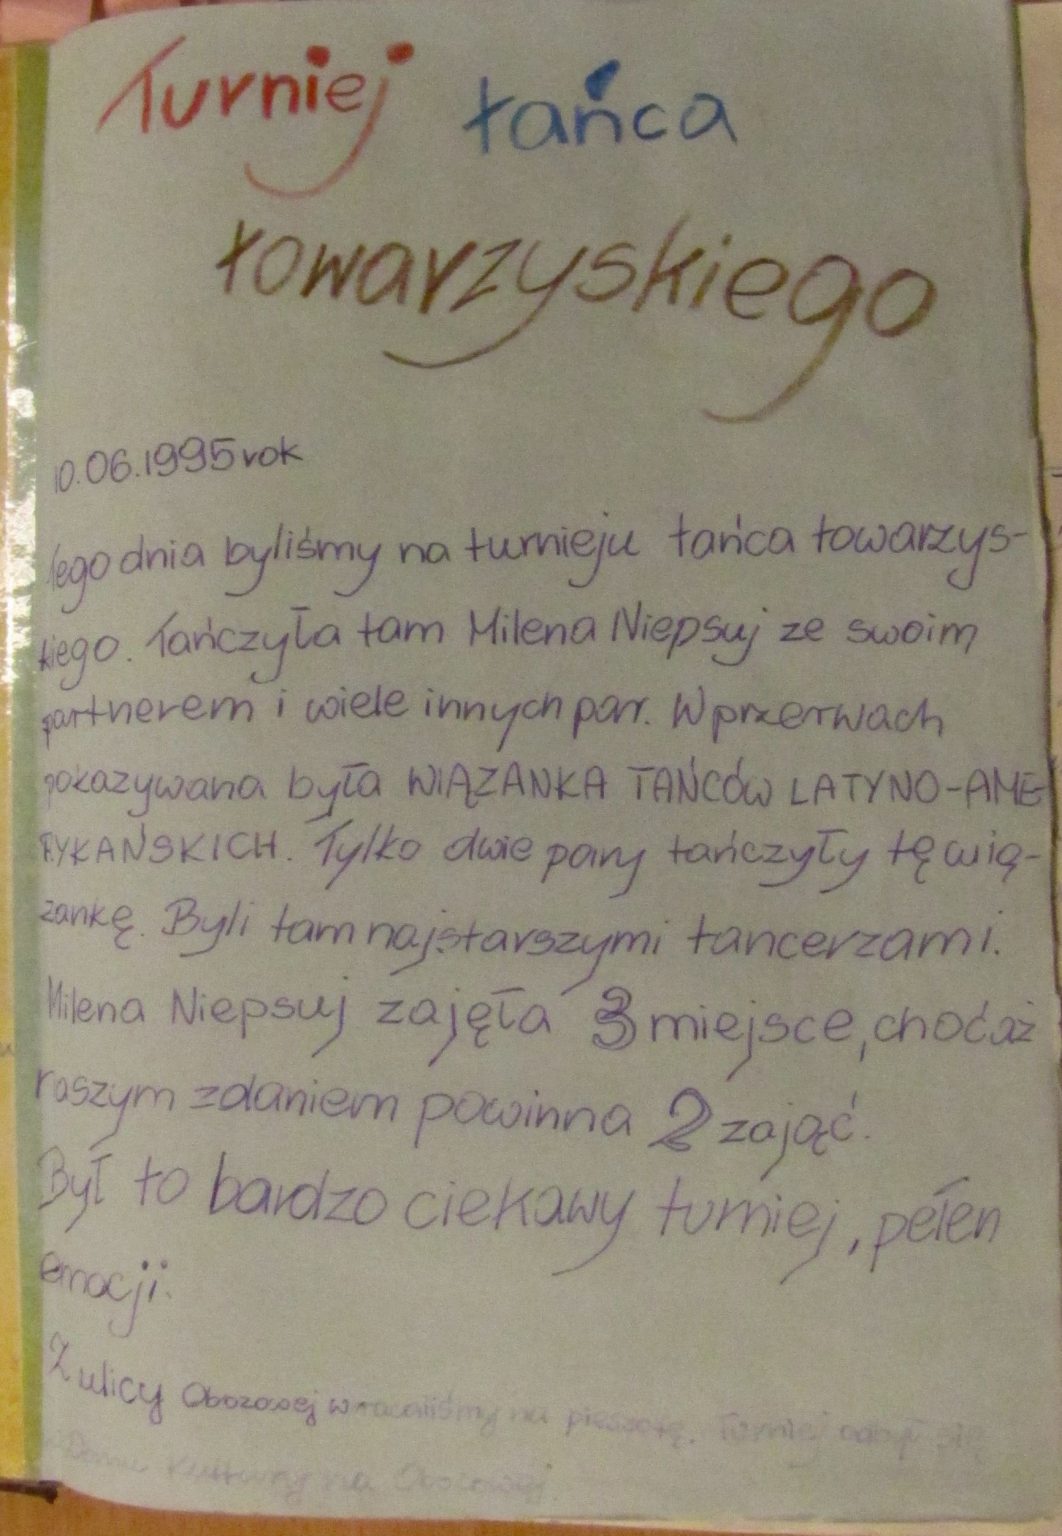 Turniej tańca
towarzyskiego
10.06.1995 rok
Tego dnia byliśmy na turnieju tańca towarzys-
kiego. Tańczyła tam Milena Niepsuj ze swoim
partnerem i wiele innych par. W przerwach
pokazywana była WIĄZANKA TAŃCÓW LATYNO-AME
RYKAŃSKICH. Tylko dwie pary tańczyły tę wią-
zankę. Byli tam najstarszymi tancerzami.
Milena Niepsuj zajęła 3 miejsce, choćaż
naszym zdaniem powinna 2 zająć.
Był to bardzo ciekawy turniej, pełen
emocji.
Z ulicy Obozowej wracaliśmy na pieszotę. Turniej odbył się
w Domu Kultury na Obozowej